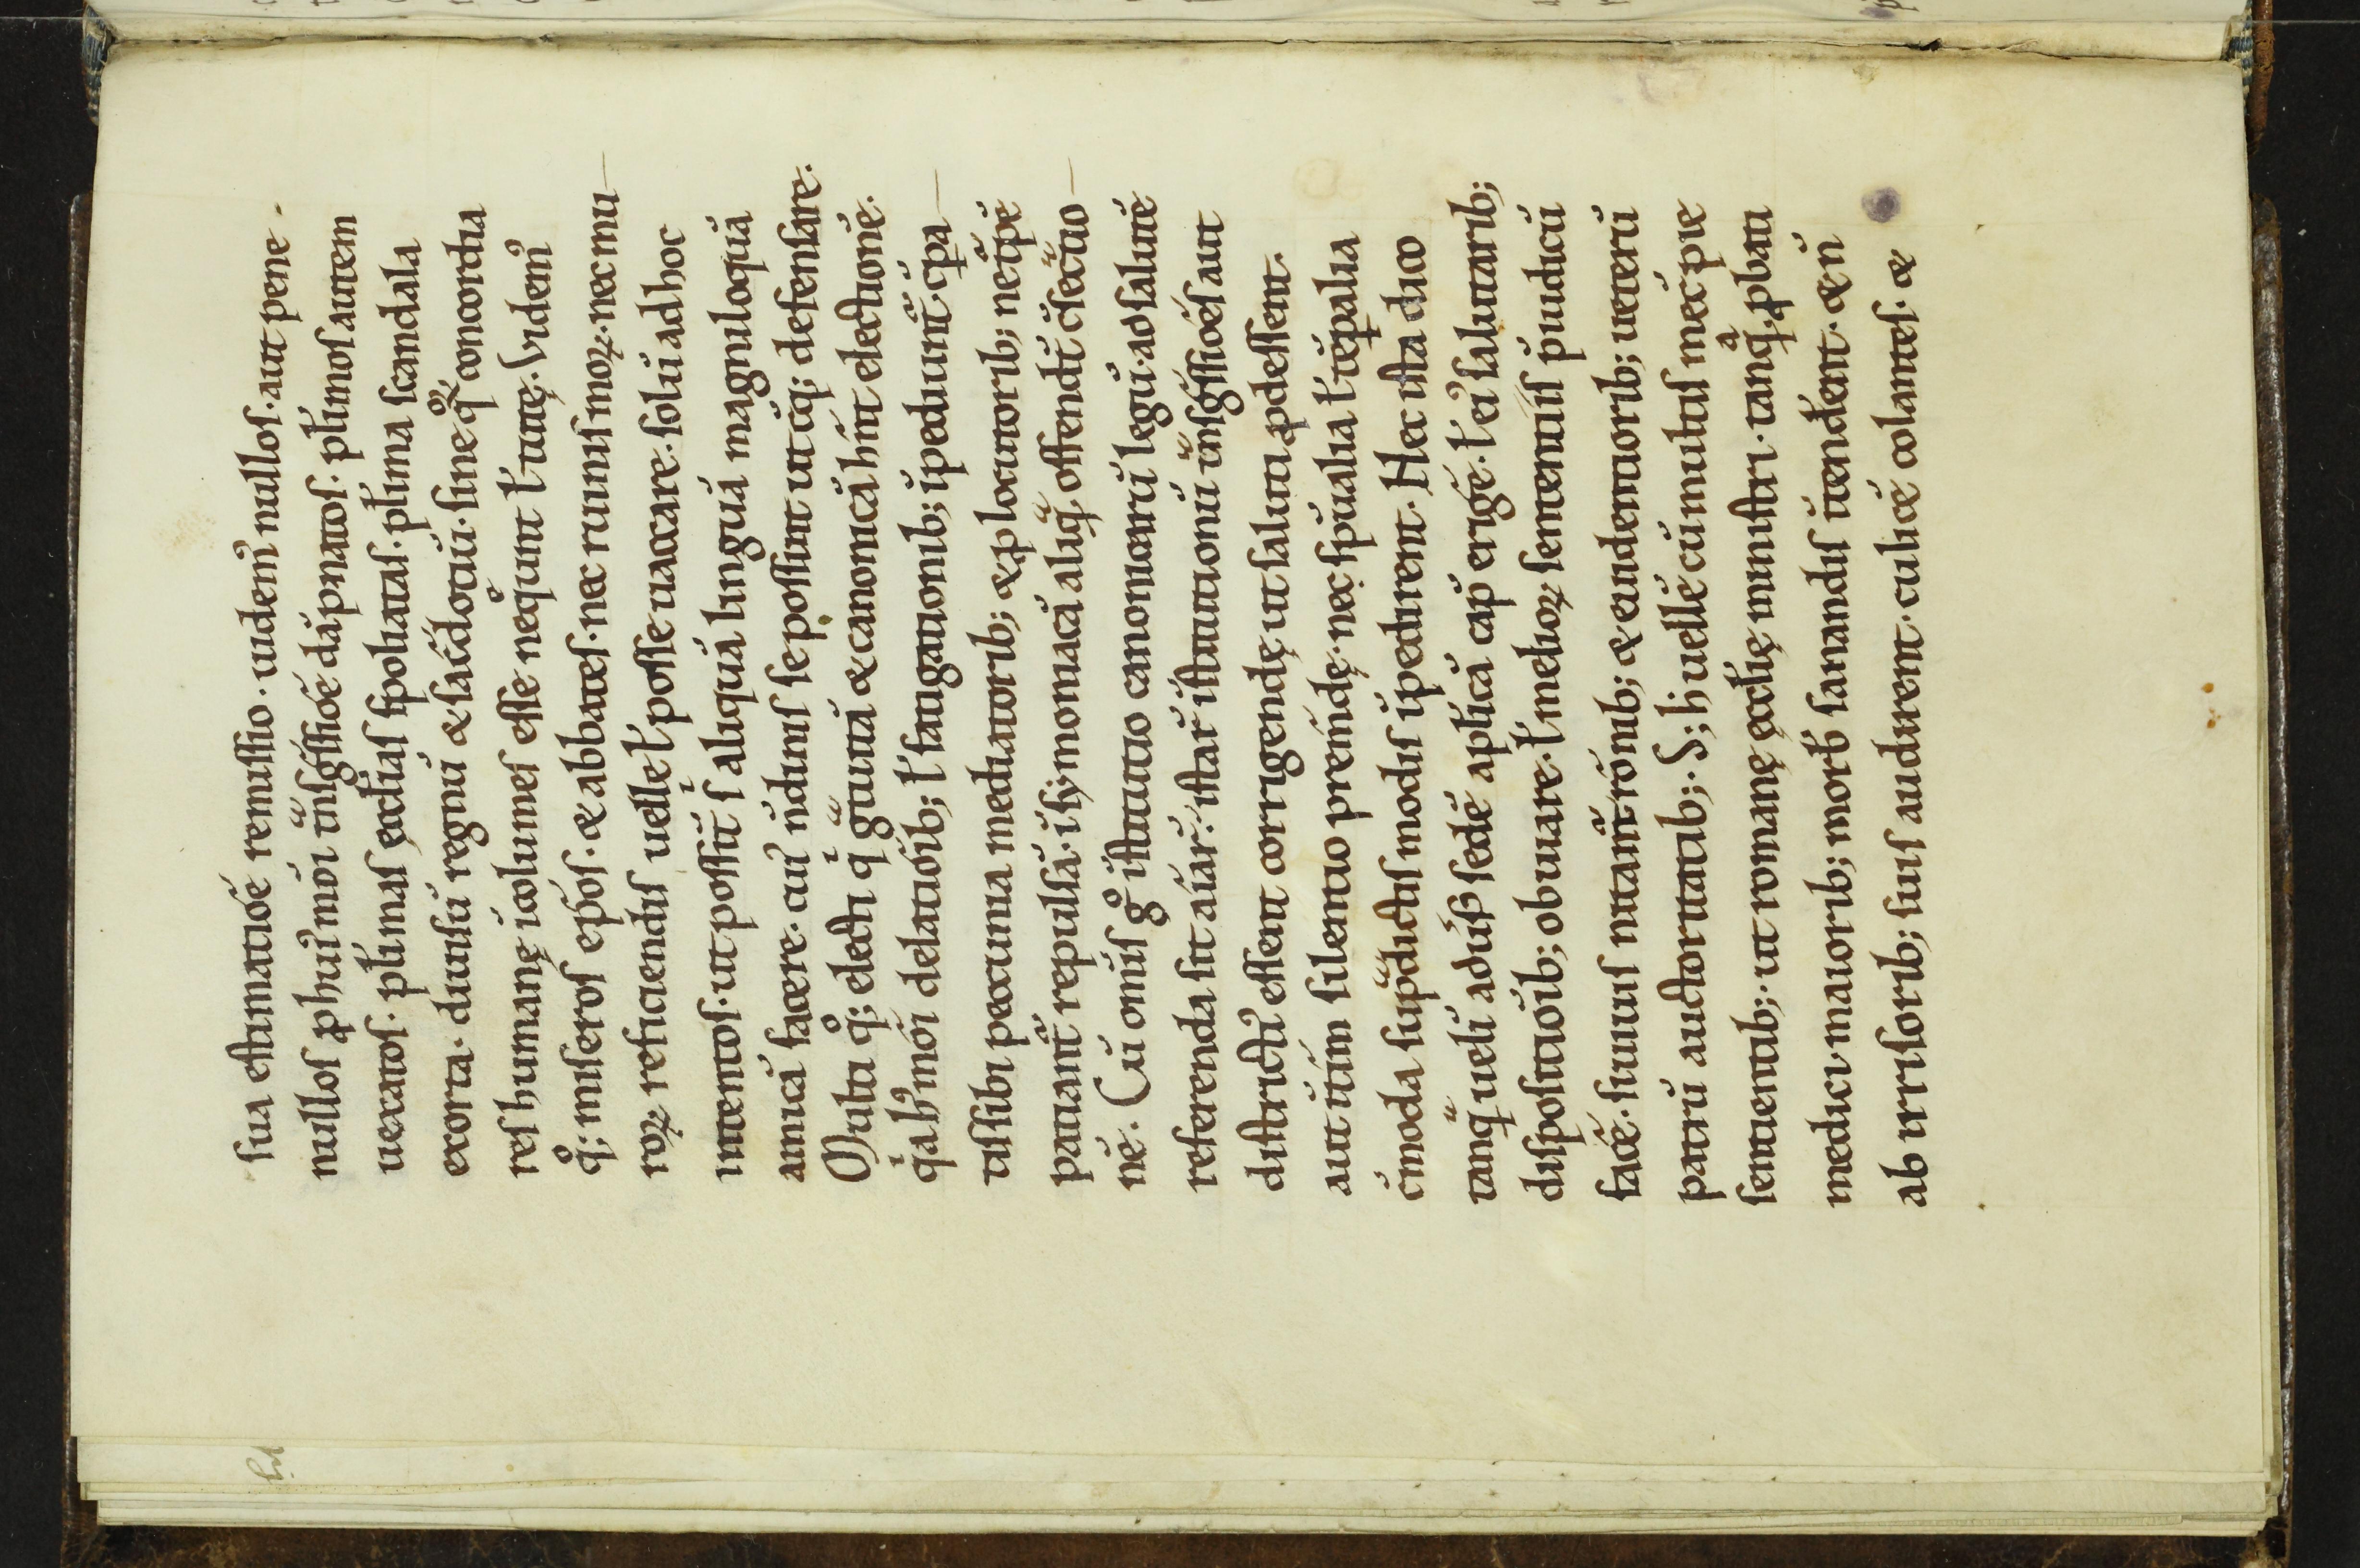 sua estimatiōe remissio. uidem᾽ nullos. aut pene
nullos ꝓ hui᾽mōi t̄nsg̃ssiōe dāpnatos. pl̄imos autem
uexatos. pl̄imas ęcctias spoliatas. pl̄ima scandala
exorta. diuisū regnū & sac̄dotiū. sine qͦꝝ concordia
res humanę īcolumes esse neqͦunt ł tutę. Videm᾽
qͦ; miseros ep̄os. & abbates. nec ruinis moꝝ. nec mu-
roꝝ reficiendis uelle ł posse uacare. solū ad hoc
intentos. ut possīt sͥ aliquā linguā magniloquā
amicā facere. cui᾽ n̄diniis se possint utiq; defensare.
Multi qͦ; electi qͥ g̃tuitā & canonicā hn̄t electionē.
qͥa b᾽mōi delatiōib; ł fatigationib; īpediunt̄. c̄pa-
tis sibi pecunia mediatorib; & ꝓlocutorib; ne īpē
patiant̄ repulsā. ī symoniacā aliq̃. offendūt c̄secͣtio-
nē. Cū om̄is gͦ īstitutio canonicarū legū. ad salutē
referenda sit aīar̄. īstar̄ īstitutionū t̄nsg̃ssiōes aut
districti᾽ essent corrigendę ut saluti ꝓdessent.
aut īt̄im silentio prem̄dę. nec sp̄ualia ł tēꝑalia
c̄moda sup̃dictis modis īpedirent. Hec ista dico
tanq̃ uelī adūsꝰ sedē aplīcā cap̄ erigē. ł ei᾽ salutarib;
dispositiōib; obuiare. ł melioꝝ sententiis p̄iudiciū
facē. siuiuis nitant̄ rōnib; & euidentiorib; ueterū
patrū auctoritatib;. S; h̄ uellē cū multis mec̄ pie
sentientib;. ut romanę ęcctię ministri. tanqͣ. ꝓbati
medici. maiorib; morb᾽ sanandis īt̄enderent. & n̄
ab irrisorib; suis audirent. culicē colantes. &